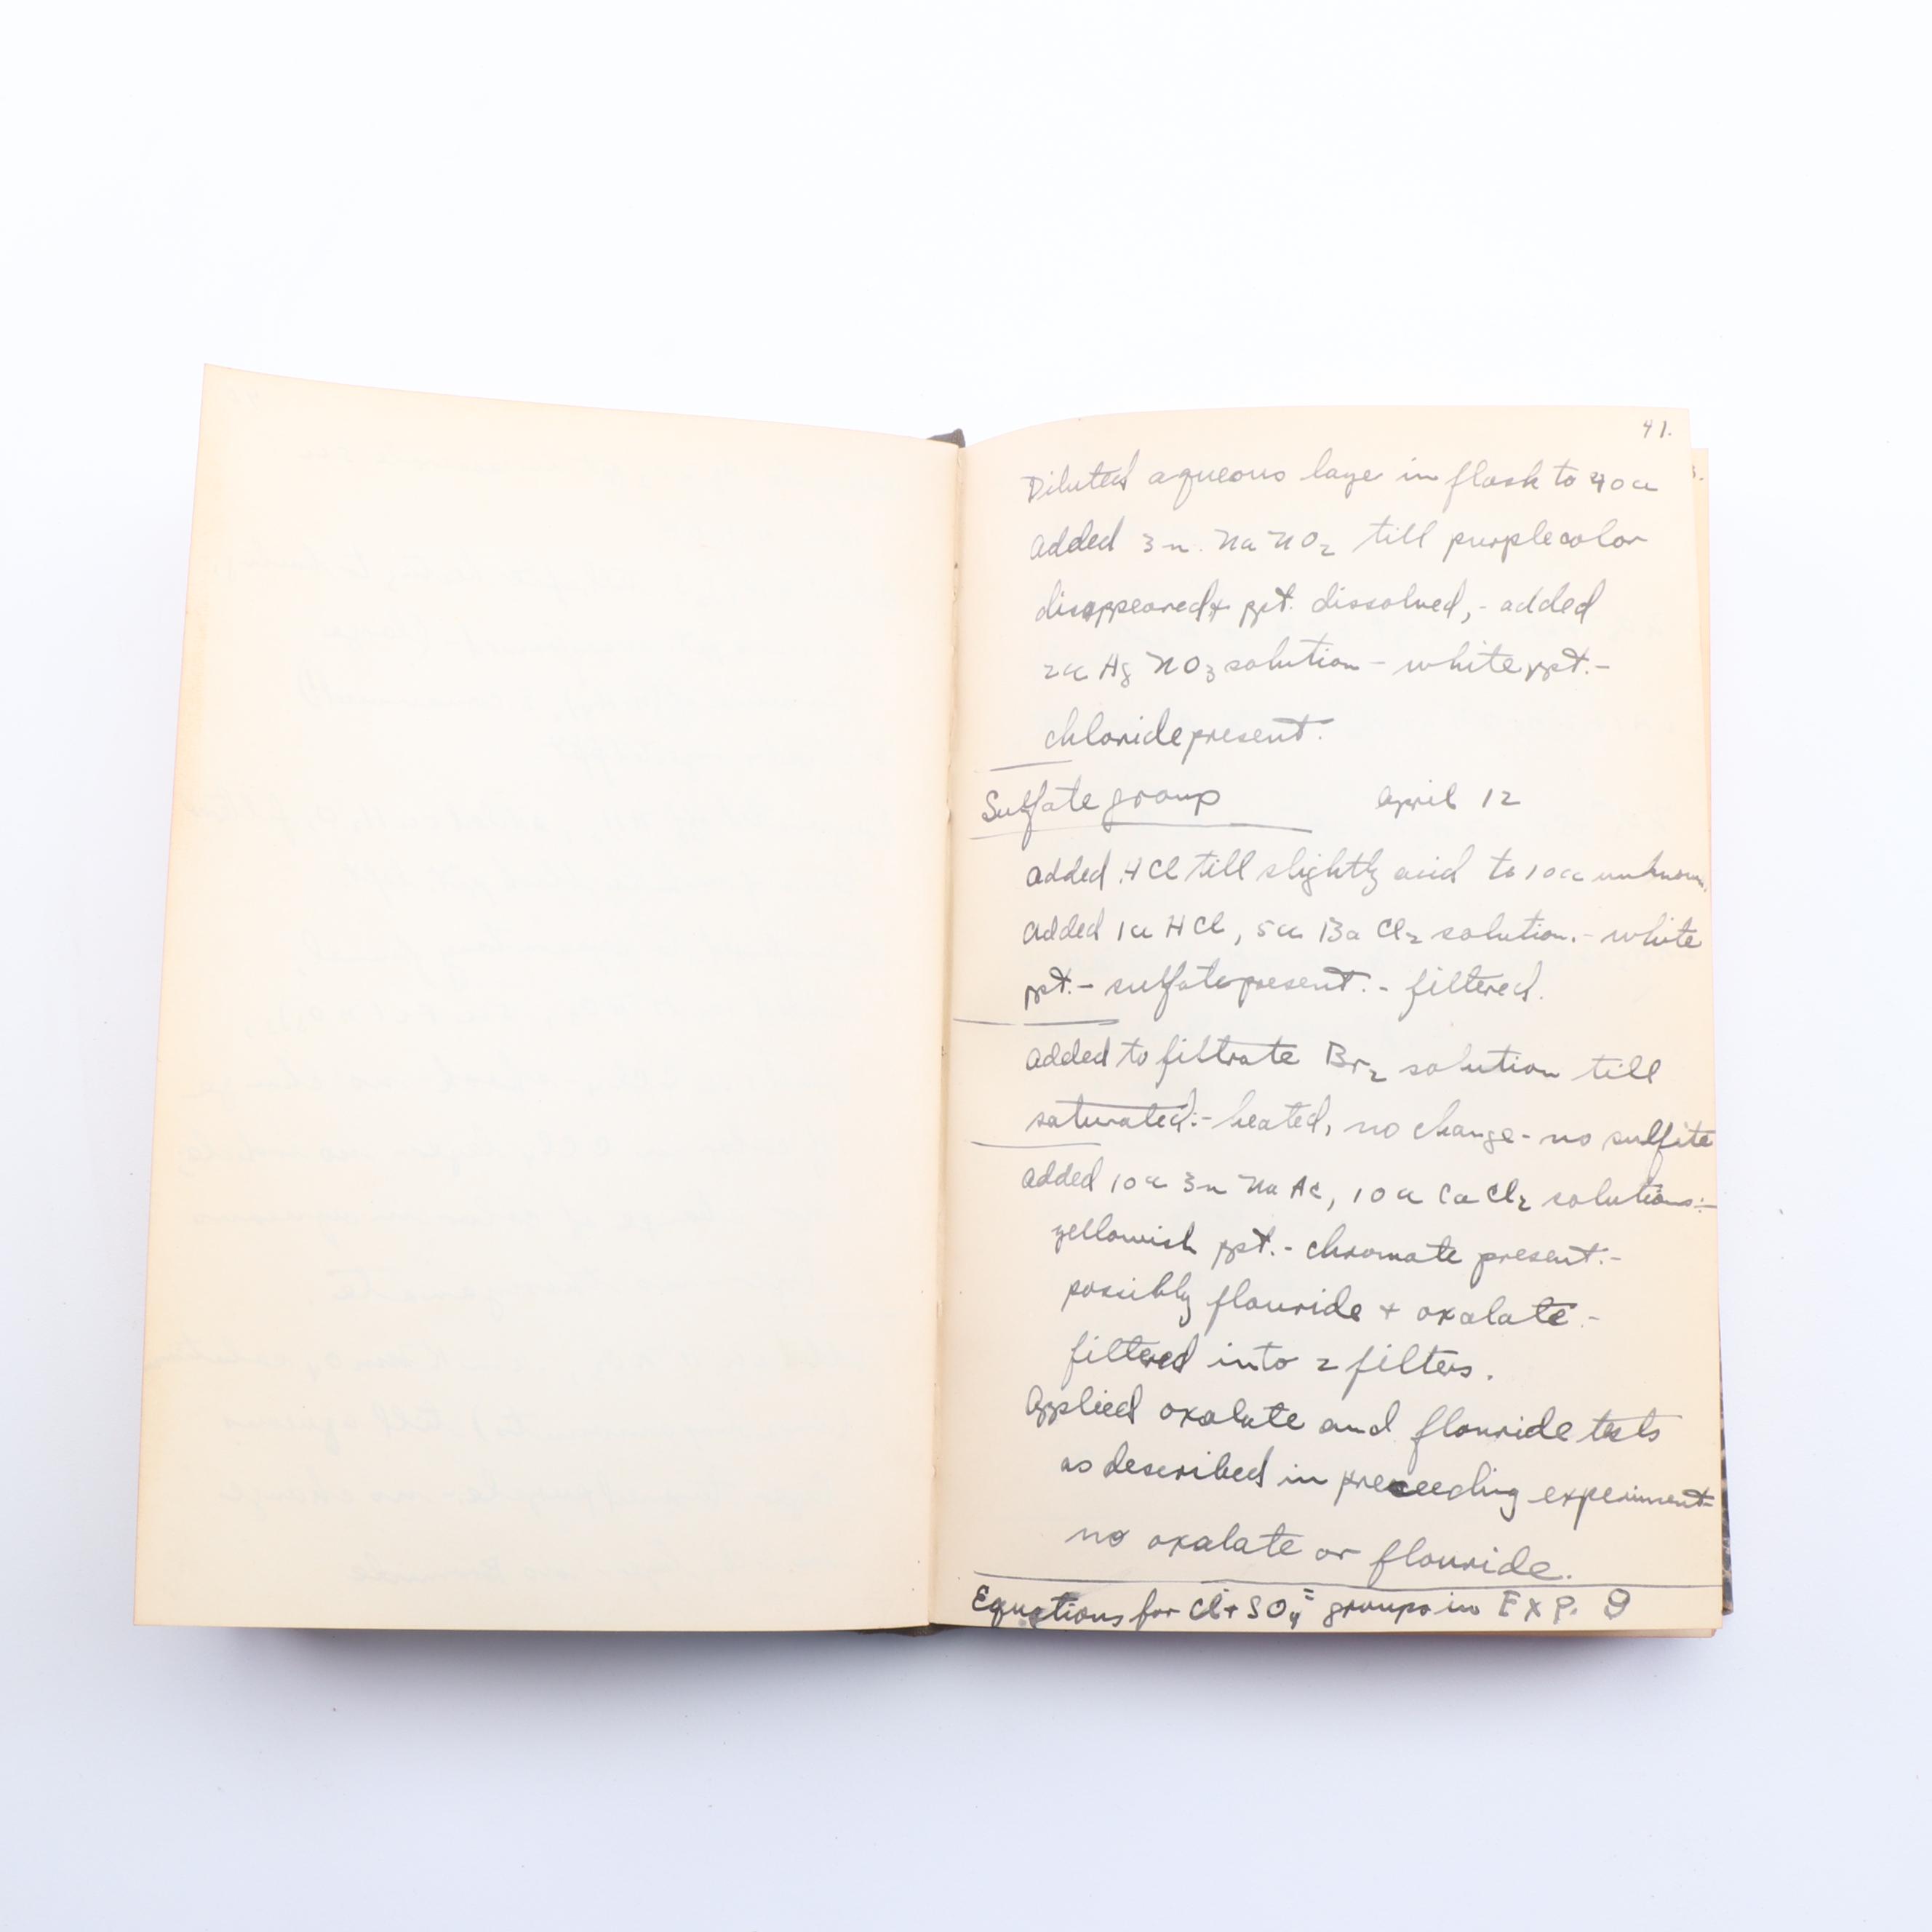 41.
Diluted aqueous laye in flask to 40 cc
added 3 n. NaNO2 till purple color
disappeared + ppt. dissolved, - added
2 cc AgNO3 solution - white ppt. -
chloride present.
Sulfate group april 12
added HCl till slightly acid to 10 cc unknown.
added 1 cc HCl, 5 cc BaCl2 solution. - white
ppt. - sulfate present. - filtered.
added to filtrate Br2 solution till
saturated: - heated, no change - no sulfite
added 10 cc 3n NaAc, 10 cc CaCl2 solutions: -
yellowish ppt. - chromate present. -
possibly flouride + oxalate. -
filtered into 2 filters.
Applied oxalate and flouride tests
as described in preceeding experiment -
no oxalate or flouride.
Equations for Cl- + SO4= groups in EXP. 9